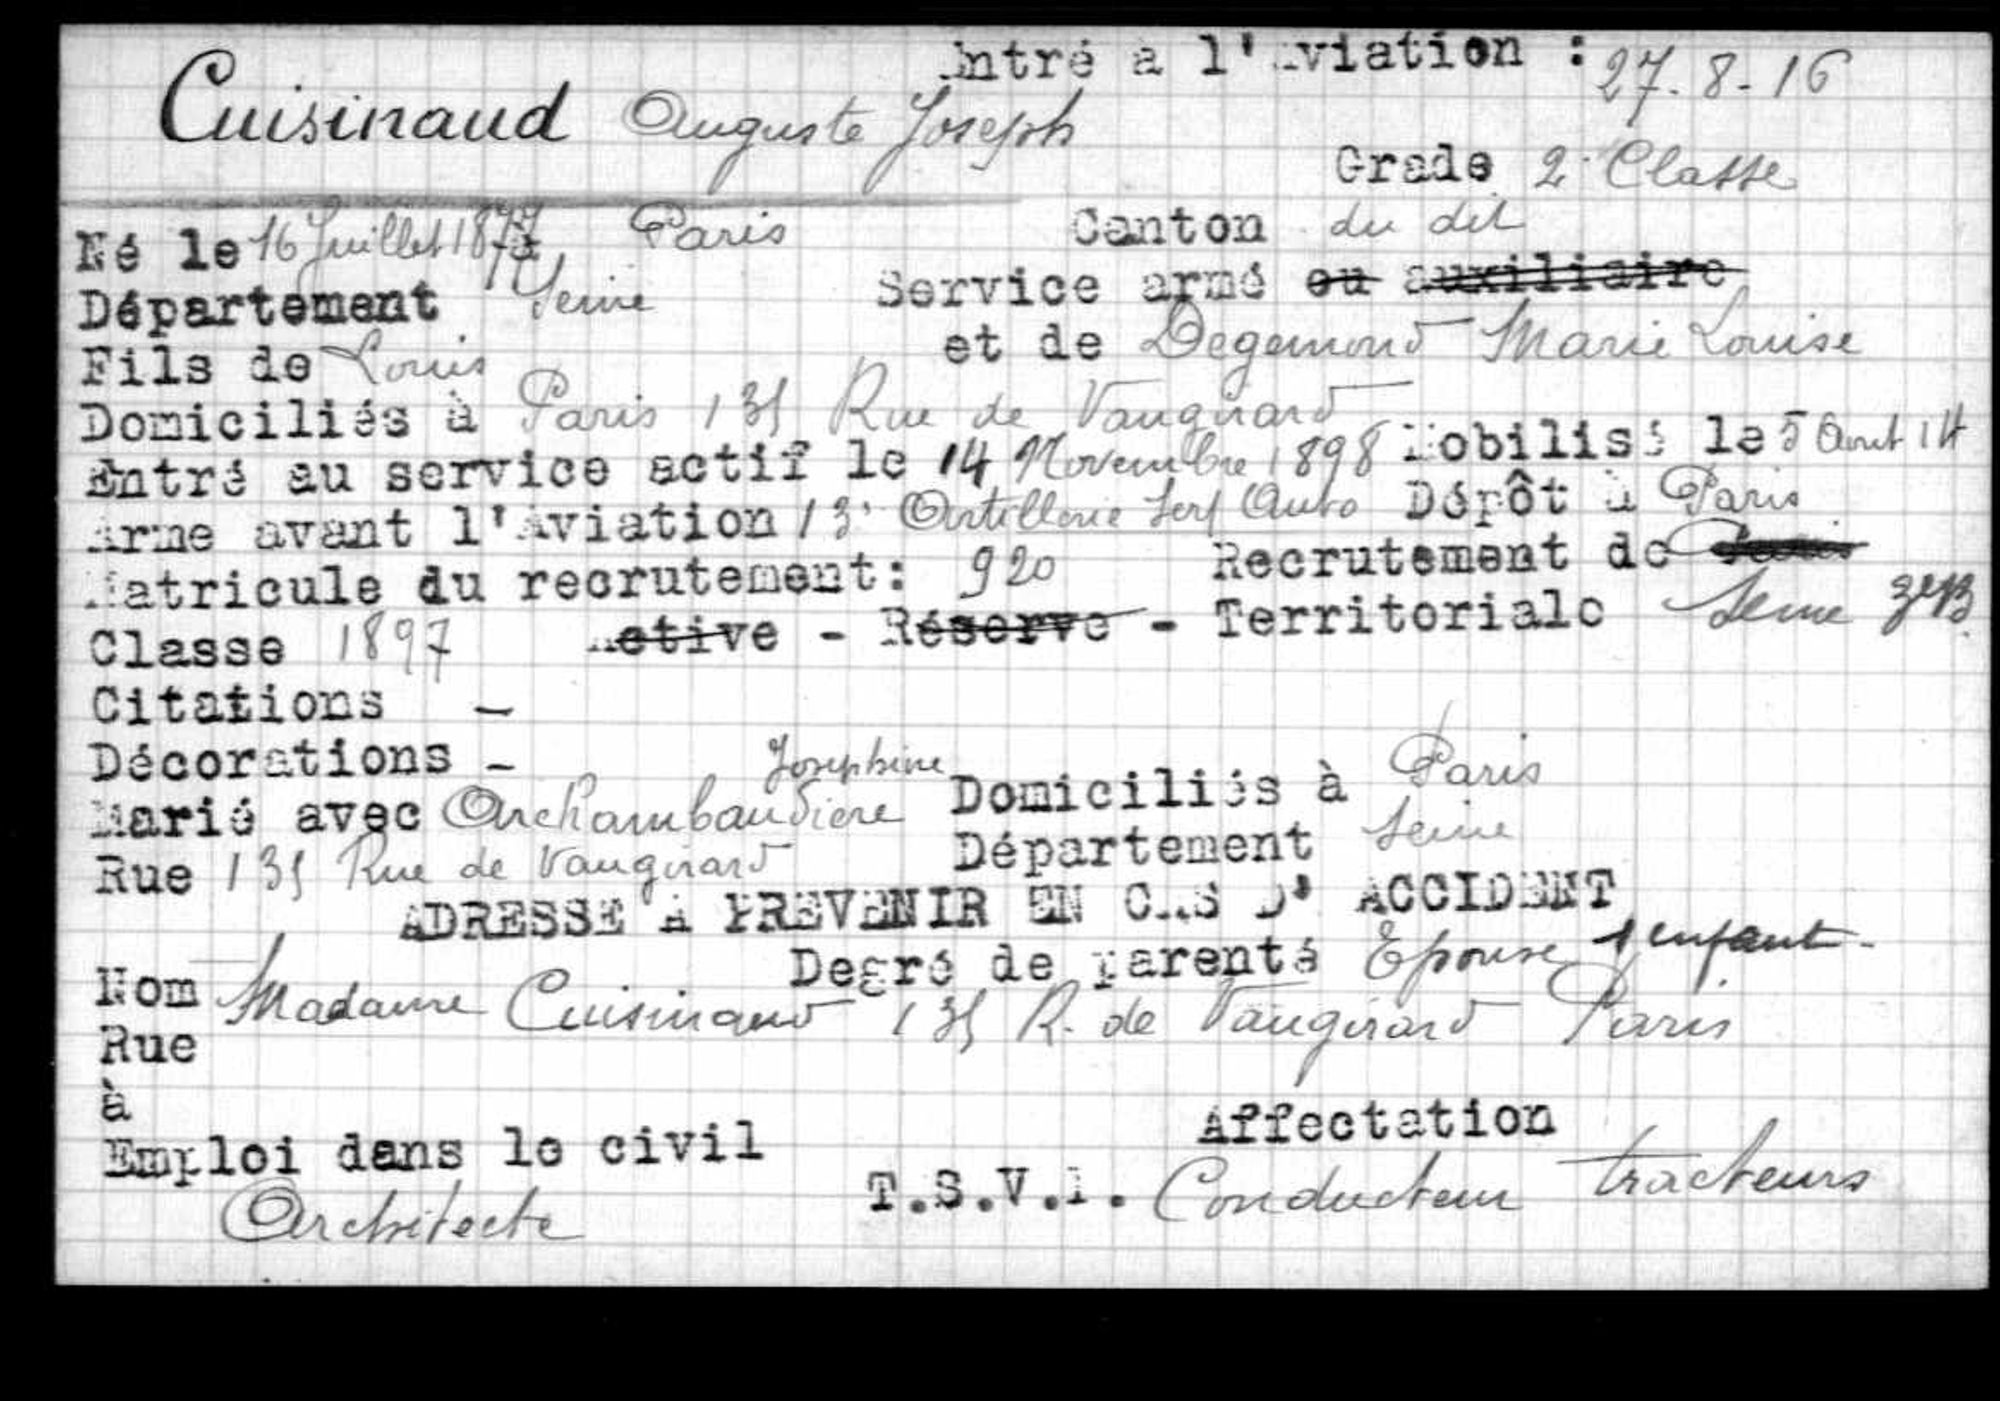 Entré a l'Aviation : 27.8-16
Cuisinaud Auguste Joseph
Grade 2e Classe
Né le 16 Juillet 1877 à Paris Canton du dit
Département Seine Service armé ou auxiliaire
Fils de Louis et de Degemond Marie Louise
Domiciliés à Paris 135 Rue de Vaugirard
Entré au service actif le 14 Novembre 1898 Mobilisé le 5 Aout 14
Arme avant l'Aviation 13e Artillerie Serv Auto Dépôt à Paris
Matricule du recrutement: 920 Recrutement de
Classe 1897 Active - Réserve - Territoriale Seine 3eB
Citations -
Décorations -
Marié avec Archambaudiere Josephine Domiciliés à Paris
Rue 135 Rue de Vaugirard Département Seine
ADRESSE A PREVENIR EN CAS D' ACCIDENT
Degré de parenté Epouse 1 enfant -
Nom Madame Cuisinaud 135 R. de Vaugirard Paris
Rue
à
Emploi dans le civil Affectation
Architecte T.S.V.P. Conducteur tracteurs